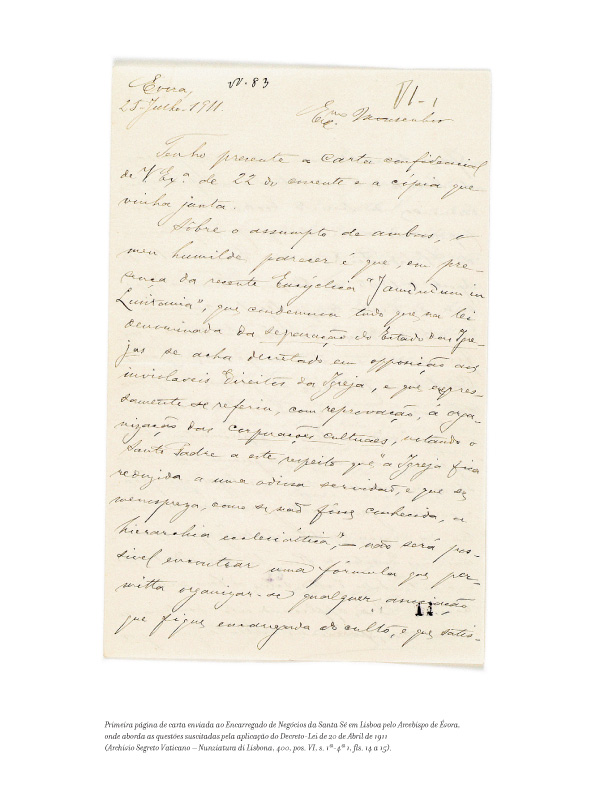 Evora,
25-Julho-1911.
N. 83
VI-1
Exmo Monsenhor
Tenho presente a carta confidencial
de V Exª. de 22 do corrente e a cópia que
vinha junta.
Sôbre o assumpto de ambos, o
meu humilde parecer é que, em pre-
sença da recente Encyclica "Jamdudum in
Lusitania", que condemnou tudo que na lei
denominada da separação do Estado das Igre-
jas se acha decretado em opposição aos
inviolaveis Direitos da Igreja, e que expres-
samente se referiu, com reprovação, á orga-
nização das corporações cultuaes, notando o
Santo Padre a este respeito que "a Igreja fica
reduzida a uma odiosa servidão, e que se
menospreza, como se não fôsse conhecida, a
hierarchia ecclesiástica", — não será pos-
sivel encontrar uma fórmula que per-
mitta organizar-se qualquer associação
14
que fique encarregada do culto, e que satis-
Primeira página de carta enviada ao Encarregado de Negócios da Santa Sé em Lisboa pelo Arcebispo de Évora,
onde aborda as questões suscitadas pela aplicação do Decreto-Lei de 20 de Abril de 1911
(Archivio Segreto Vaticano – Nunziatura di Lisbona, 400, pos. VI, s. 1ª-4ª 1, fls. 14 a 15).